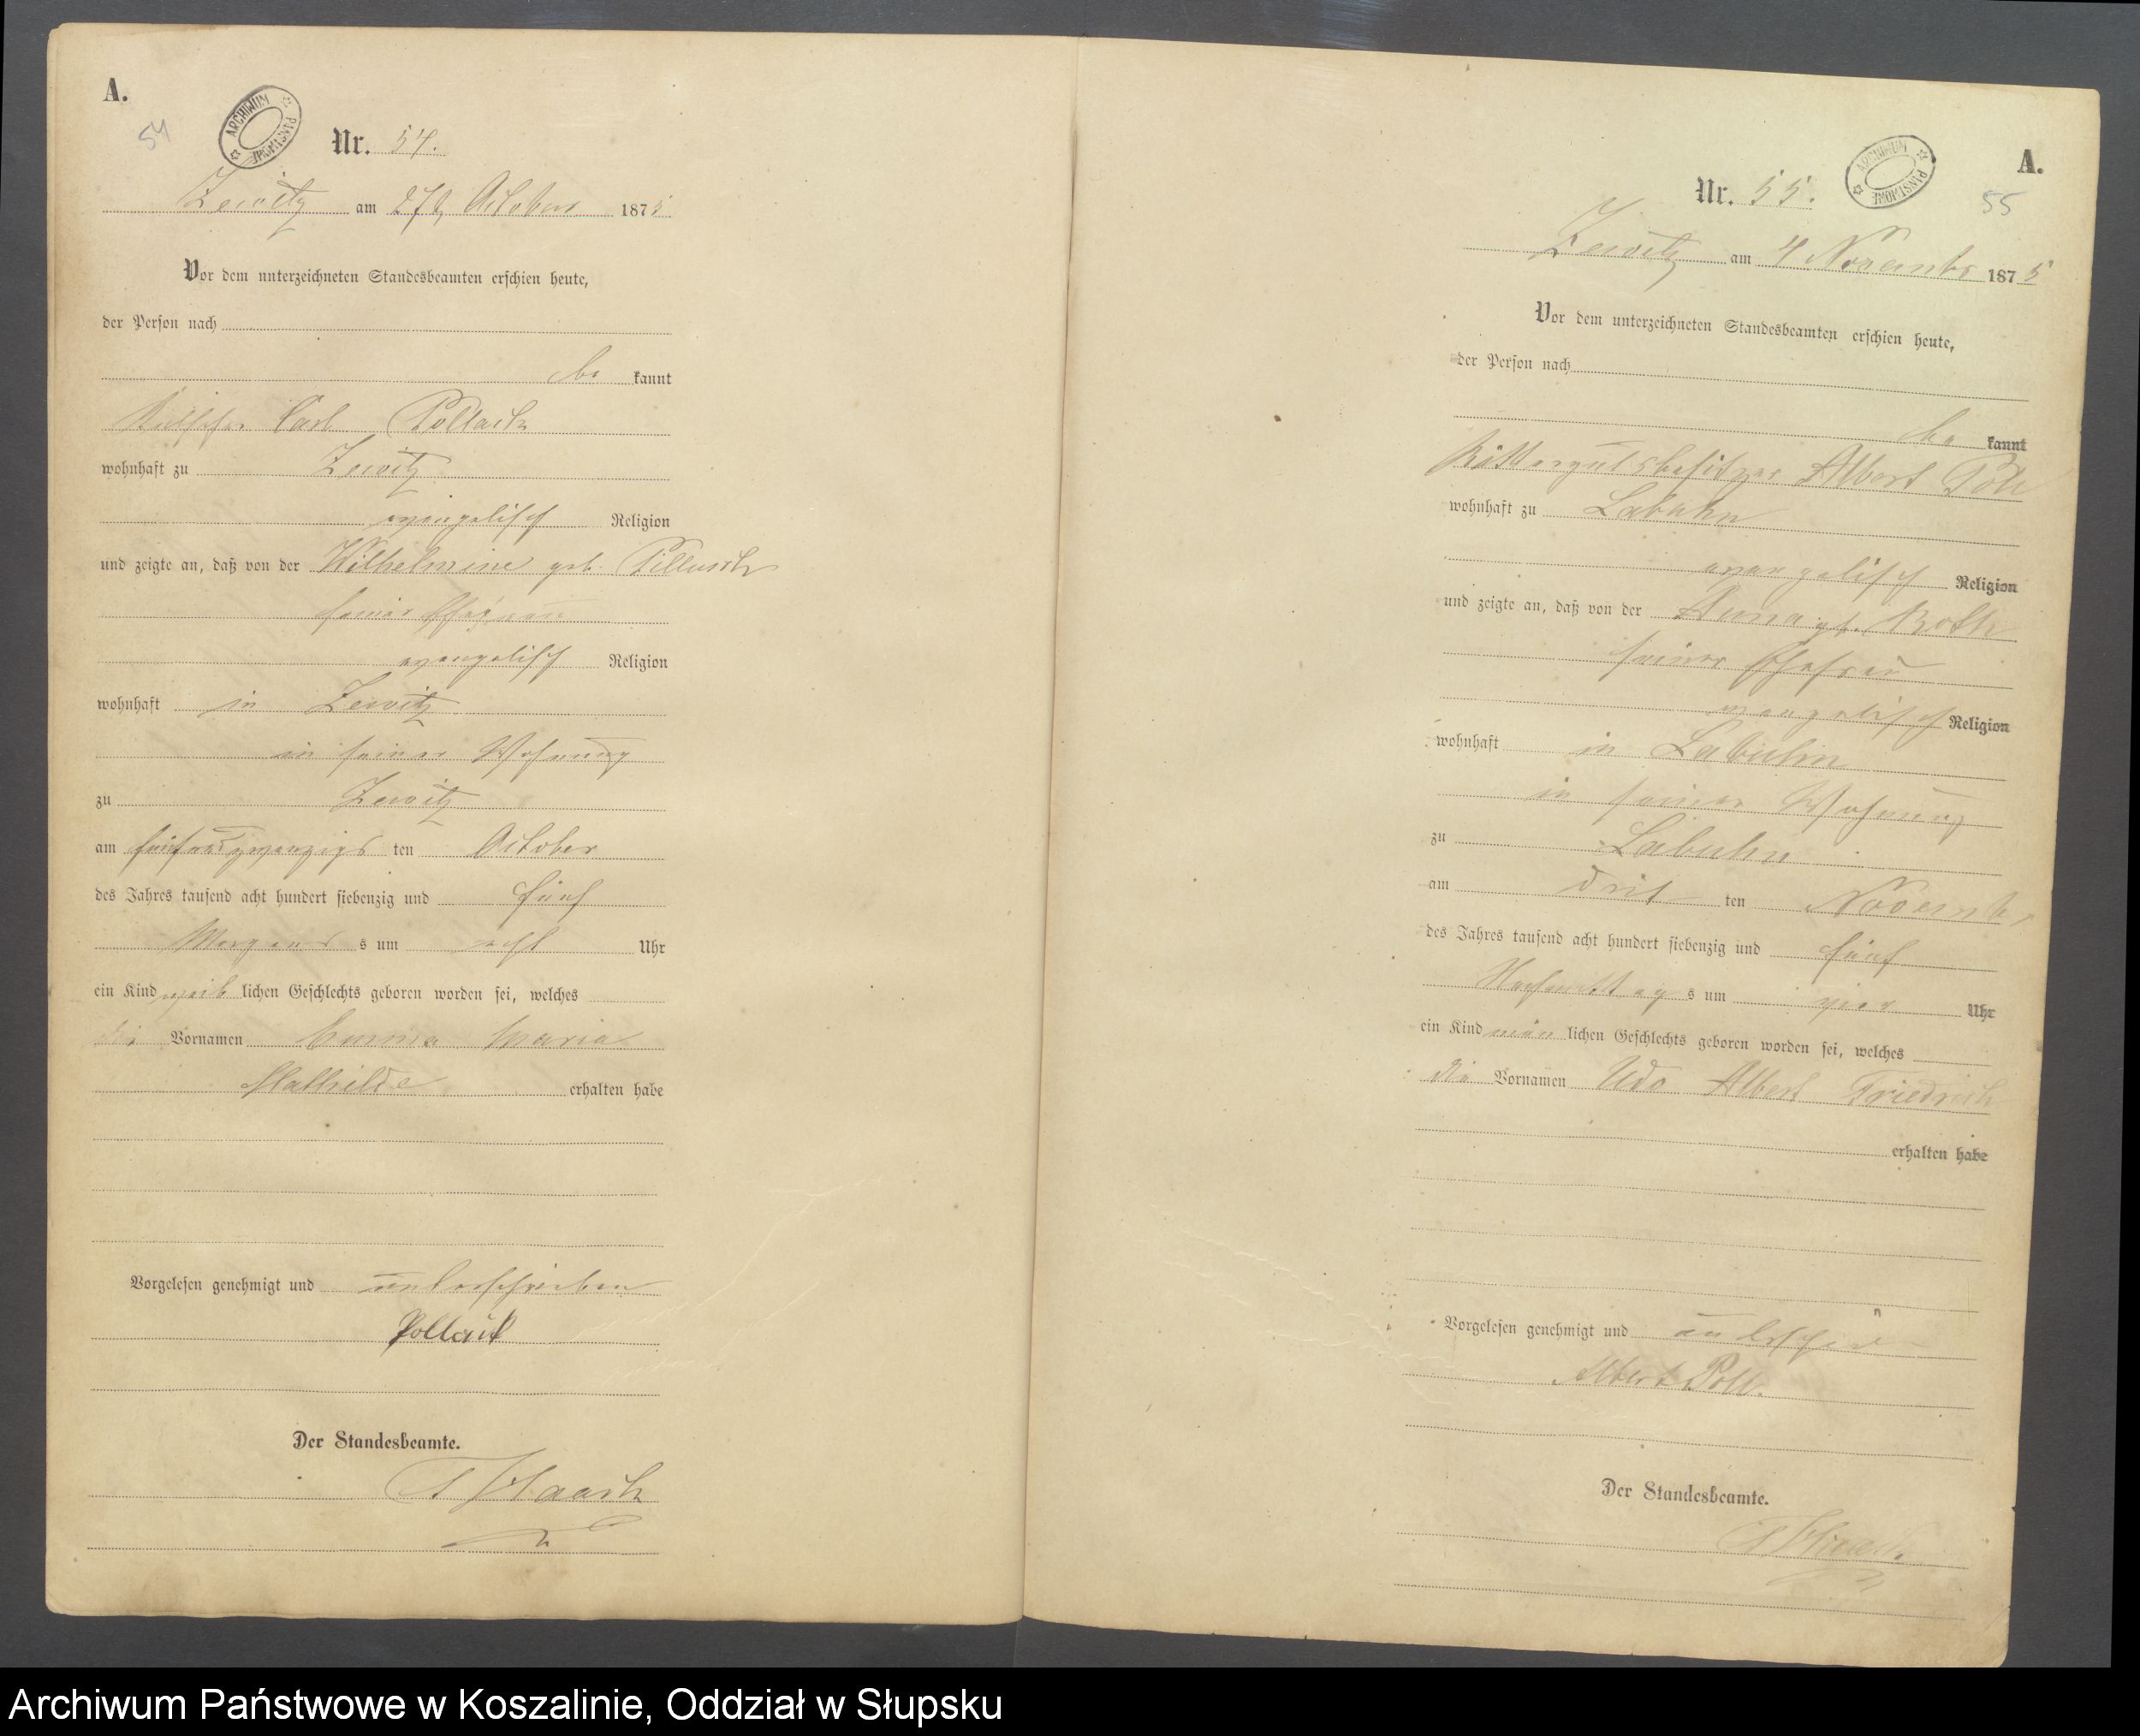 A.
54
ARCHIWUM PAŃSTWOWE
Nr. 54.
Zewitz am 27t October 1875
Vor dem unterzeichneten Standesbeamten erschien heute,
der Person nach
be kannt
Carl Pollack
wohnhaft zu Zewitz
evangelisch Religion
und zeigte an, daß von der Wilhelmine geb.
seiner Ehefrau
evangelisch Religion
wohnhaft in Zewitz
in seiner Wohnung
zu Zewitz
am fünfundzwanzigs ten October
des Jahres tausend acht hundert siebenzig und fünf
Morgens s um acht Uhr
ein Kind weib lichen Geschlechts geboren worden sei, welches
die Vornamen Emma Maria
Mathilde erhalten habe
Vorgelesen genehmigt und unterschrieben
Pollack
Der Standesbeamte.
A.
55
ARCHIWUM PAŃSTWOWE
Nr. 55.
Zewitz am 4 Novembr 1875
Vor dem unterzeichneten Standesbeamten erschien heute,
der Person nach
be kannt
Rittergutsbesitzer Albert Poll
wohnhaft zu Labuhn
evangelisch Religion
und zeigte an, daß von der Anna gb. Roth
seiner Ehefrau
evangelisch Religion
wohnhaft in Labuhn
in seiner Wohnung
zu Labuhn
am drit ten Novemb
des Jahres tausend acht hundert siebenzig und fünf
Nachmittag s um vier Uhr
ein Kind män lichen Geschlechts geboren worden sei, welches
die Vornamen Udo Albert Friedrich
erhalten habe
Vorgelesen genehmigt und
Albert Poll.
Der Standesbeamte.
Archiwum Państwowe w Koszalinie, Oddział w Słupsku